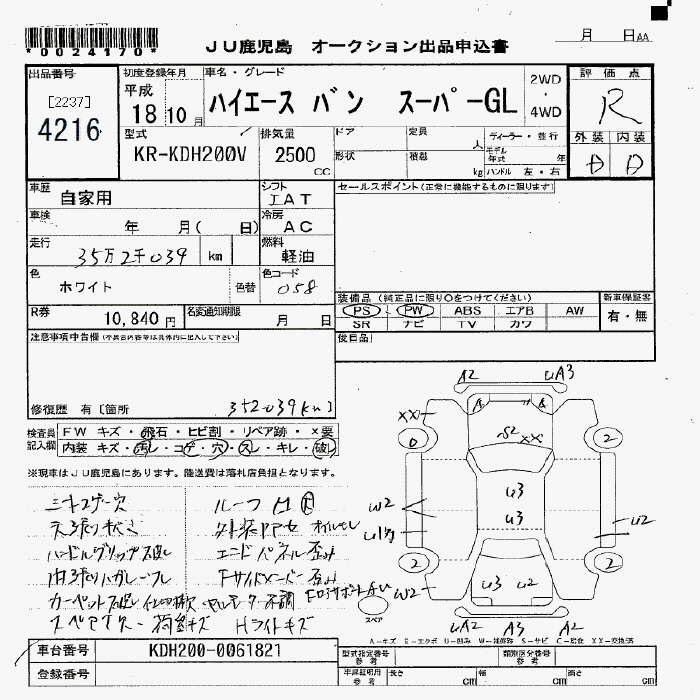 *0024170*
JU鹿児島 オークション出品申込書
月 日AA
出品番号
[2237]
4216
初度登録年月
平成
18 10月
車名・グレード
ハイエース バン スーパーGL
2WD
・
4WD
評価点
R
外装 内装
D D
型式
KR-KDH200V
排気量
2500
CC
ドア
定員
人
形状
積載
kg
ディーラー・並行
モデル年式 年
ハンドル 左・右
車歴
自家用
シフト
IAT
セールスポイント(正常に機能するものに限ります)
車検
年 月( 日)
冷房
AC
走行
35万2千039 km
燃料
軽油
色
ホワイト
色替
色コード
058
装備品(純正品に限り○をつけてください)
新車保証書
PS PW ABS エアB AW
SR ナビ TV カワ
有・無
R券
10,840円
名変通知期限
月 日
後日品
注意事項申告欄(不具合内容等は具体的に記入して下さい)
修復歴 有〔箇所
352039km〕
検査員記入欄
FW キズ・飛石・ヒビ割・リペア跡・×要
内装 キズ・汚レ・コゲ・穴・スレ・キレ・破レ
※現車はJU鹿児島にあります。陸送費は落札店負担となります。
天張り
ハンドルグリップ
ルーフ
エンドパネル歪み
カーペット
スペアタイヤ
荷室キズ
Hライトキズ
A2
uA3
XX
A
A
S2
XX
0
2
u3
u3
w2
u2
2
2
u3
u2
w2
uA2
A3
A2
スペア
A-キズ E-エクボ U-凹み W-補修跡 S-サビ C-腐食 XX-交換済
車台番号
KDH200-0061821
登録番号
型式指定番号
参考
類別区分番号
参考
車庫証明用
参考
長さ cm
幅 cm
高さ cm